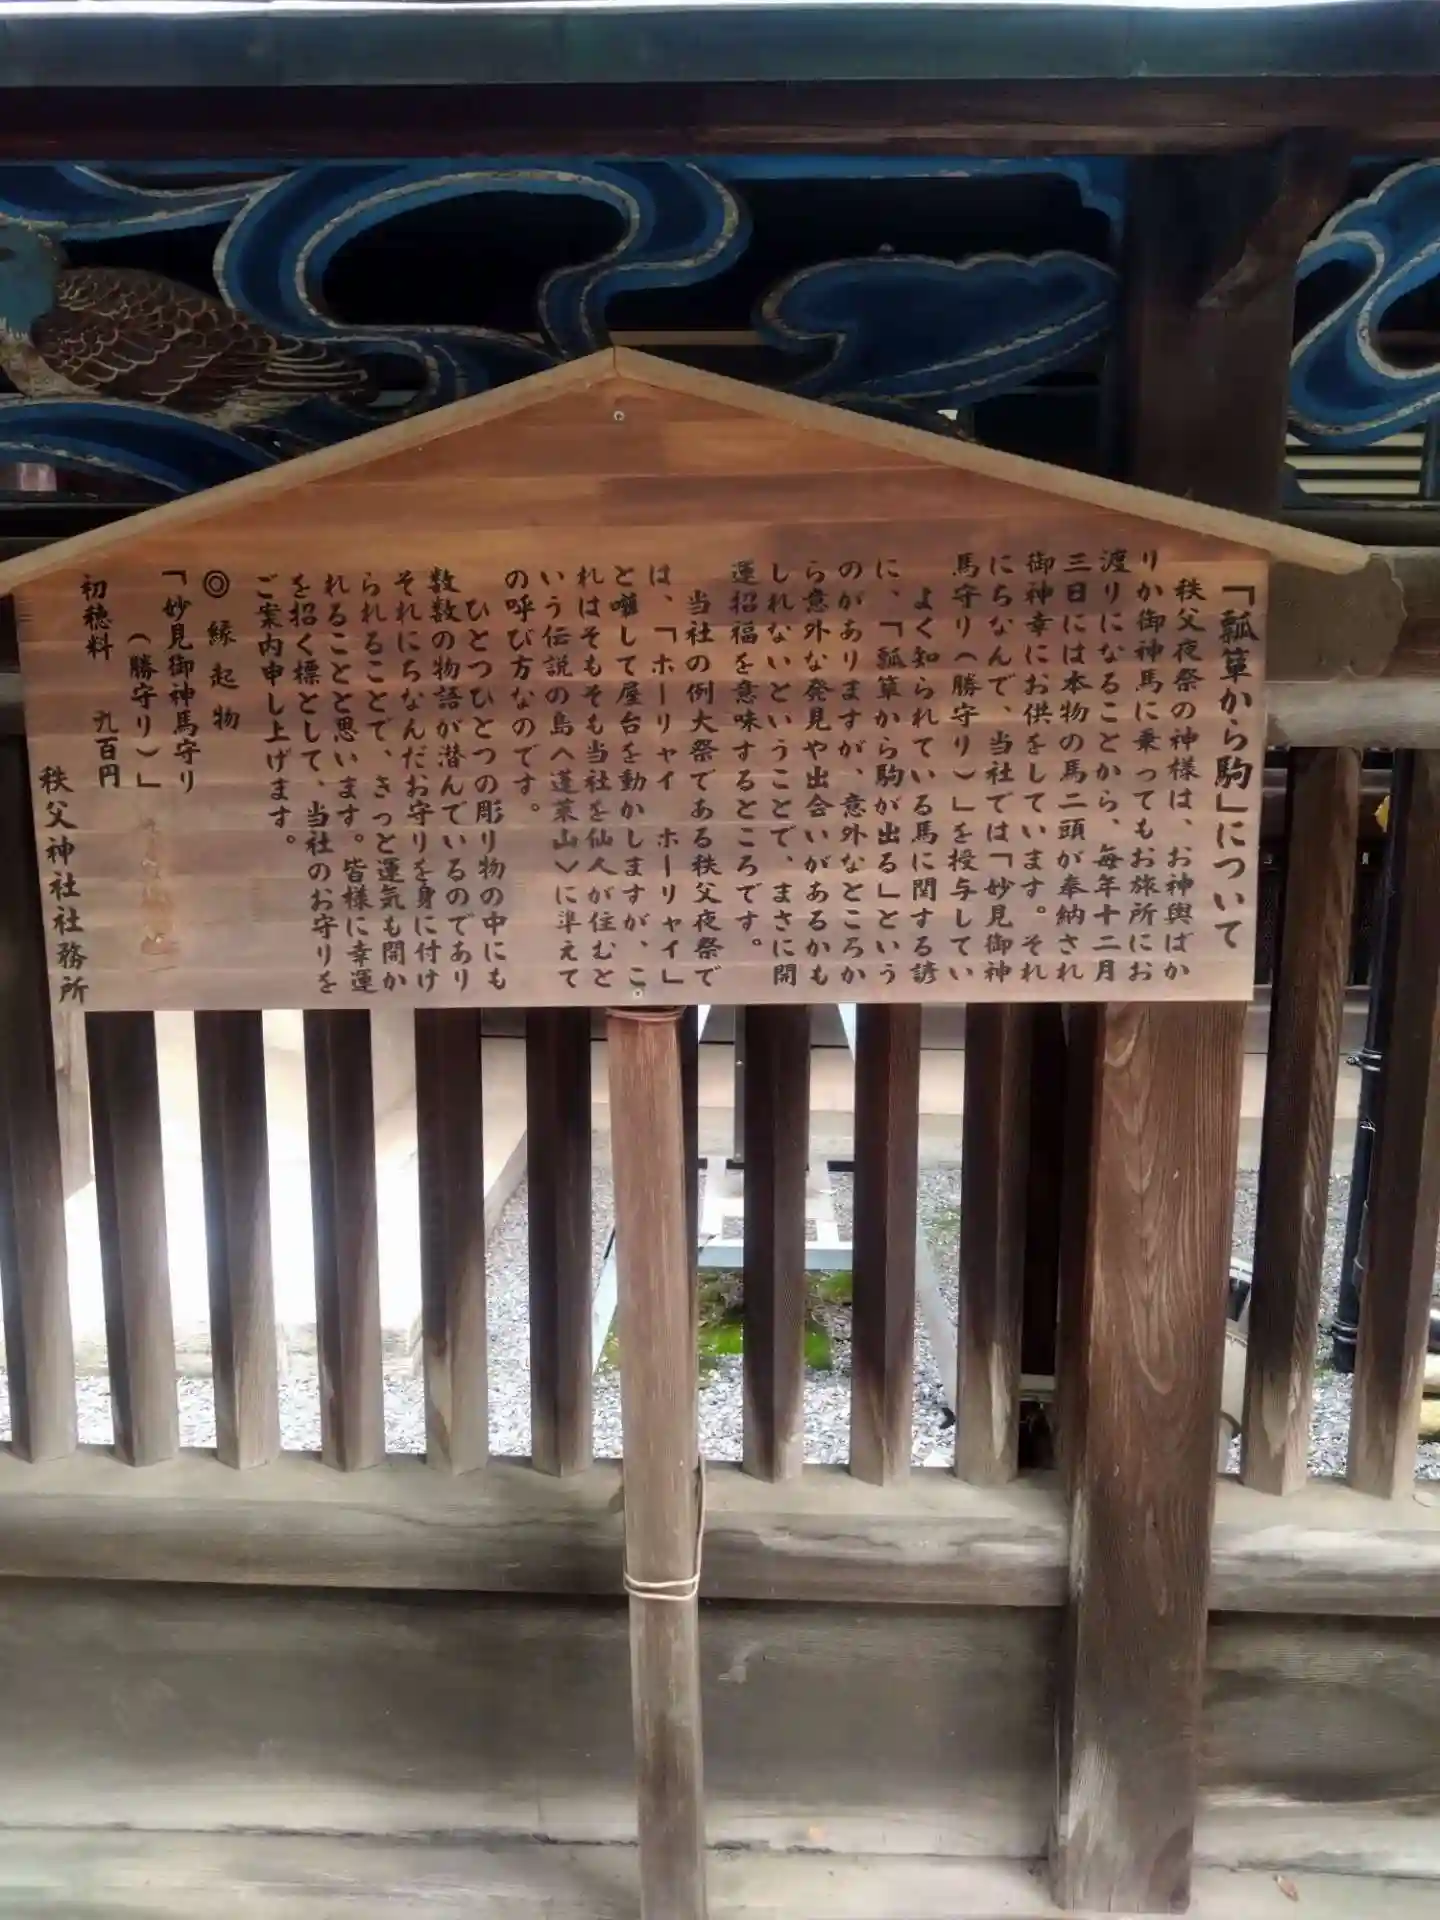 「瓢箪から駒」について
秩父夜祭の神様は、お神輿ばか
りか御神馬に乗ってもお旅所にお
渡りになることから、毎年十二月
三日には本物の馬二頭が奉納され
御神幸にお供をしています。それ
にちなんで、当社では「妙見御神
馬守り(勝守り)」を授与してい
よく知られている馬に関する諺
に、「瓢箪から駒が出る」という
のがありますが、意外なところか
ら意外な発見や出会いがあるかも
しれないということで、まさに開
運招福を意味するところです。
当社の例大祭である秩父夜祭で
は、「ホーリャイ ホーリャイ」
と囃して屋台を動かしますが、こ
れはそもそも当社を仙人が住むと
いう伝説の島へ蓬莱山〉に準えて
の呼び方なのです。
ひとつひとつの彫り物の中にも
数数の物語が潜んでいるのであり
それにちなんだお守りを身に付け
られることで、きっと運気も開か
れることと思います。皆様に幸運
を招く標として、当社のお守りを
ご案内申し上げます。
◎ 縁起物
「妙見御神馬守り
(勝守り)」
初穂料 九百円
秩父神社社務所